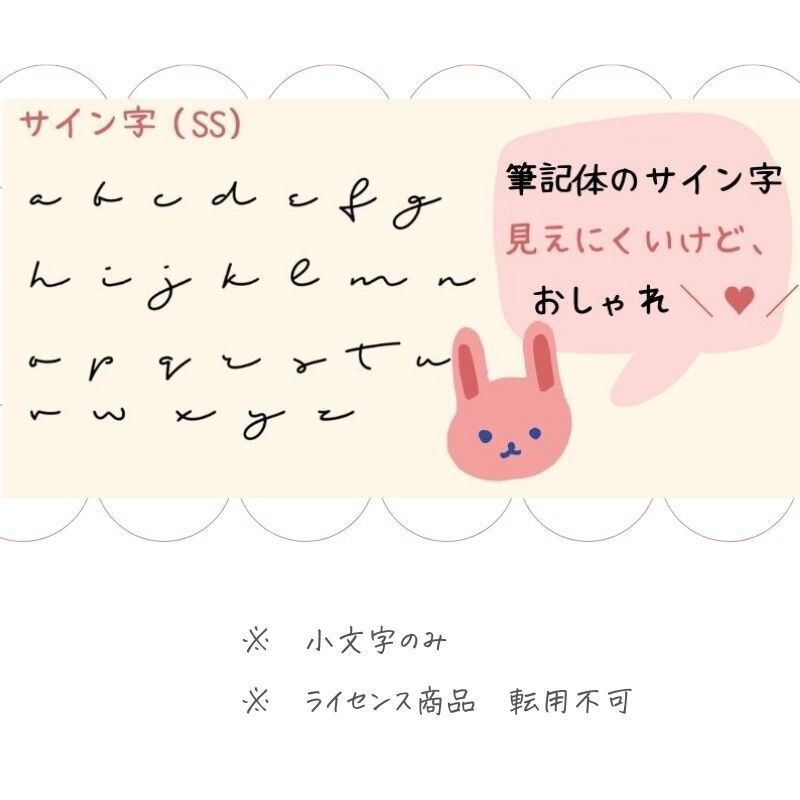 サイン字（SS）
a b c d e f g
h i j k l m n
o p q r s t u
v w x y z
筆記体のサイン字
見えにくいけど、
おしゃれ＼♥／
※　小文字のみ
※　ライセンス商品　転用不可